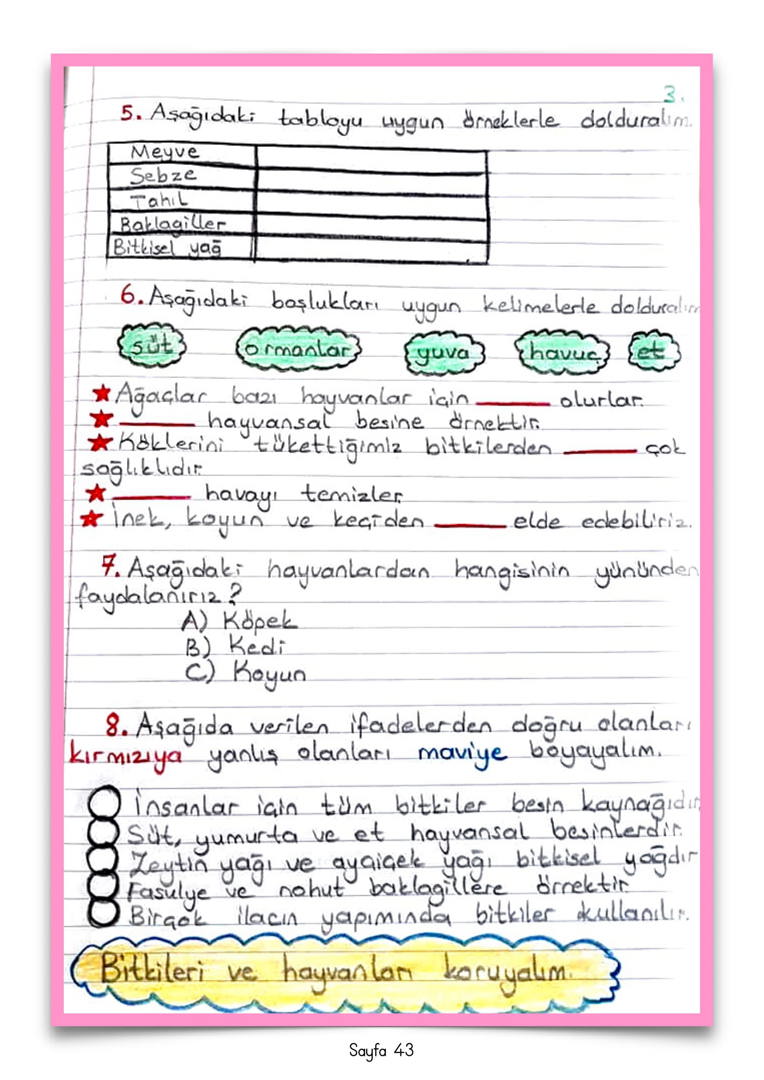 3.
5. Aşağıdaki tabloyu uygun örneklerle dolduralım.
Meyve
Sebze
Tahıl
Baklagiller
Bitkisel yağ
6. Aşağıdaki boşlukları uygun kelimelerle dolduralım
süt ormanlar yuva havuç et
Ağaçlar bazı hayvanlar için ______ olurlar.
______ hayvansal besine örnektir.
Köklerini tükettiğimiz bitkilerden ______ çok
sağlıklıdır
______ havayı temizler
İnek, koyun ve keçiden ______ elde edebiliriz.
7. Aşağıdaki hayvanlardan hangisinin yününden
faydalanırız?
A) Köpek
B) Kedi
C) Koyun
8. Aşağıda verilen ifadelerden doğru olanları
kırmızıya yanlış olanları maviye boyayalım.
İnsanlar için tüm bitkiler besin kaynağıdır
Süt, yumurta ve et hayvansal besinlerdir.
Zeytin yağı ve ayçiçek yağı bitkisel yağdır
Fasulye ve nohut baklagillere örnektir
Birçok ilacın yapımında bitkiler kullanılır.
Bitkileri ve hayvanları koruyalım.
Sayfa 43